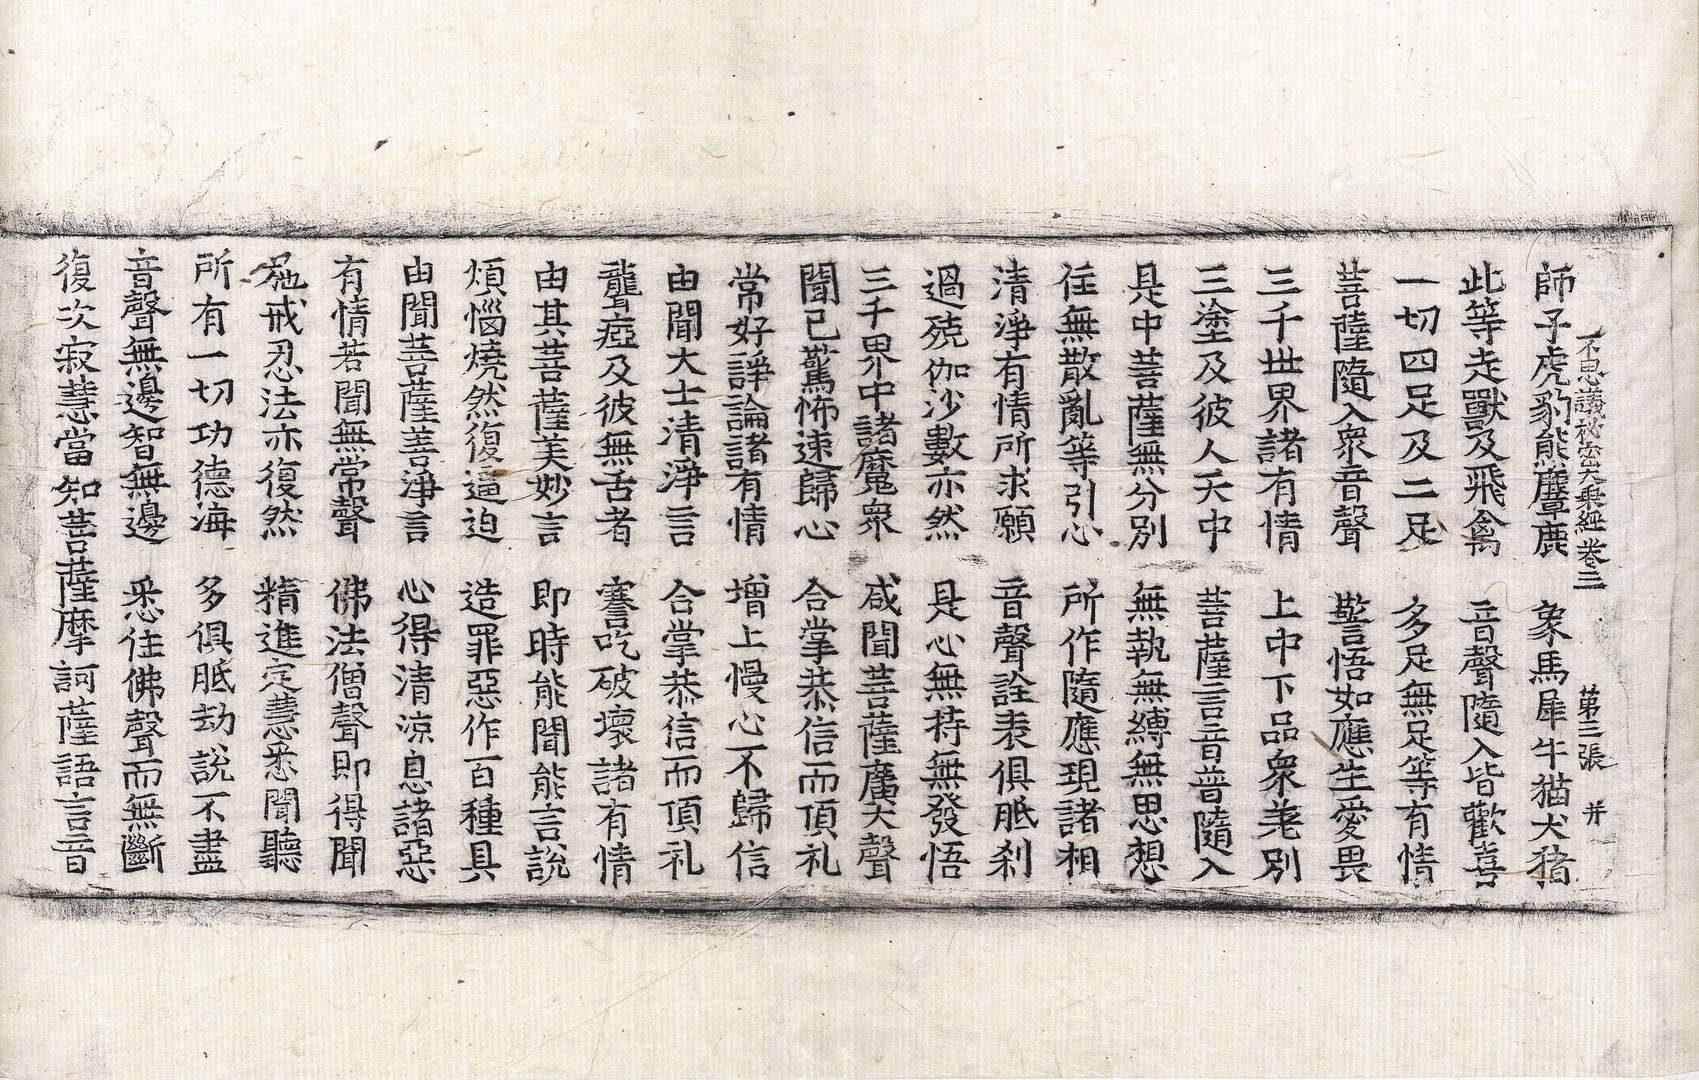 不思議祕密大乘經卷三 第三張 并
師子虎豹熊麞鹿 象馬犀牛猫犬猪
此等走獸及飛禽 音聲隨入皆歡喜
一切四足及二足 多足無足等有情
菩薩隨入衆音聲 警悟如應生愛畏
三千世界諸有情 上中下品衆差別
三塗及彼人天中 菩薩言音普隨入
是中菩薩無分別 無執無縛無思想
住無散亂等引心 所作隨應現諸相
清淨有情所求願 音聲詮表俱胝刹
過殑伽沙數亦然 是心無持無發悟
三千界中諸魔衆 咸聞菩薩廣大聲
聞已驚怖速歸心 合掌恭信而頂礼
常好諍論諸有情 增上慢心不歸信
由聞大士清淨言 合掌恭信而頂礼
聾瘂及彼無舌者 謇吃破壞諸有情
由其菩薩美妙言 即時能聞能言說
煩惱燒然復逼迫 造罪惡作百種具
由聞菩薩善淨言 心得清涼息諸惡
有情若聞無常聲 佛法僧聲即得聞
施戒忍法亦復然 精進定慧悉聞聽
所有一切功德海 多俱胝劫說不盡
音聲無邊智無邊 悉住佛聲而無斷
復次寂慧當知菩薩摩訶薩語言音